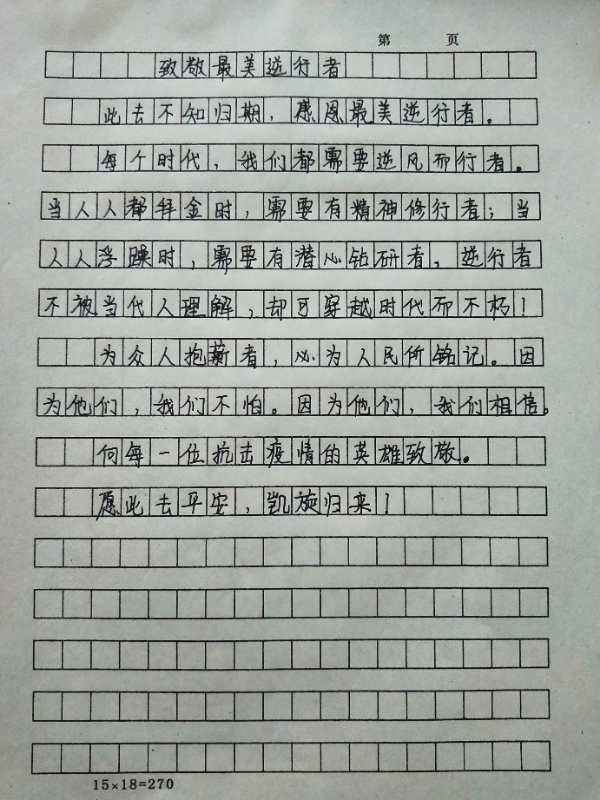 第 页
致敬最美逆行者
此去不知归期，感恩最美逆行者。
每个时代，我们都需要逆风而行者。
当人人都拜金时，需要有精神修行者；当
人人浮躁时，需要有潜心钻研者，逆行者
不被当代人理解，却可穿越时代而不朽！
为众人抱薪者，必为人民所铭记。因
为他们，我们不怕。因为他们，我们相信。
向每一位抗击疫情的英雄致敬。
愿此去平安，凯旋归来！
15×18=270